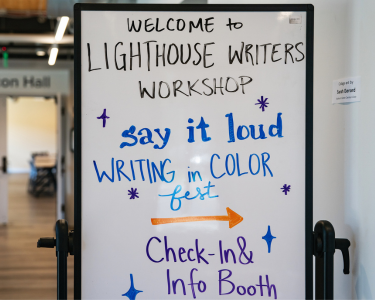 WELCOME to
LIGHTHOUSE WRITERS
WORKSHOP
say it loud
WRITING in COLOR
fest
Check-In&
Info Booth
con Hall